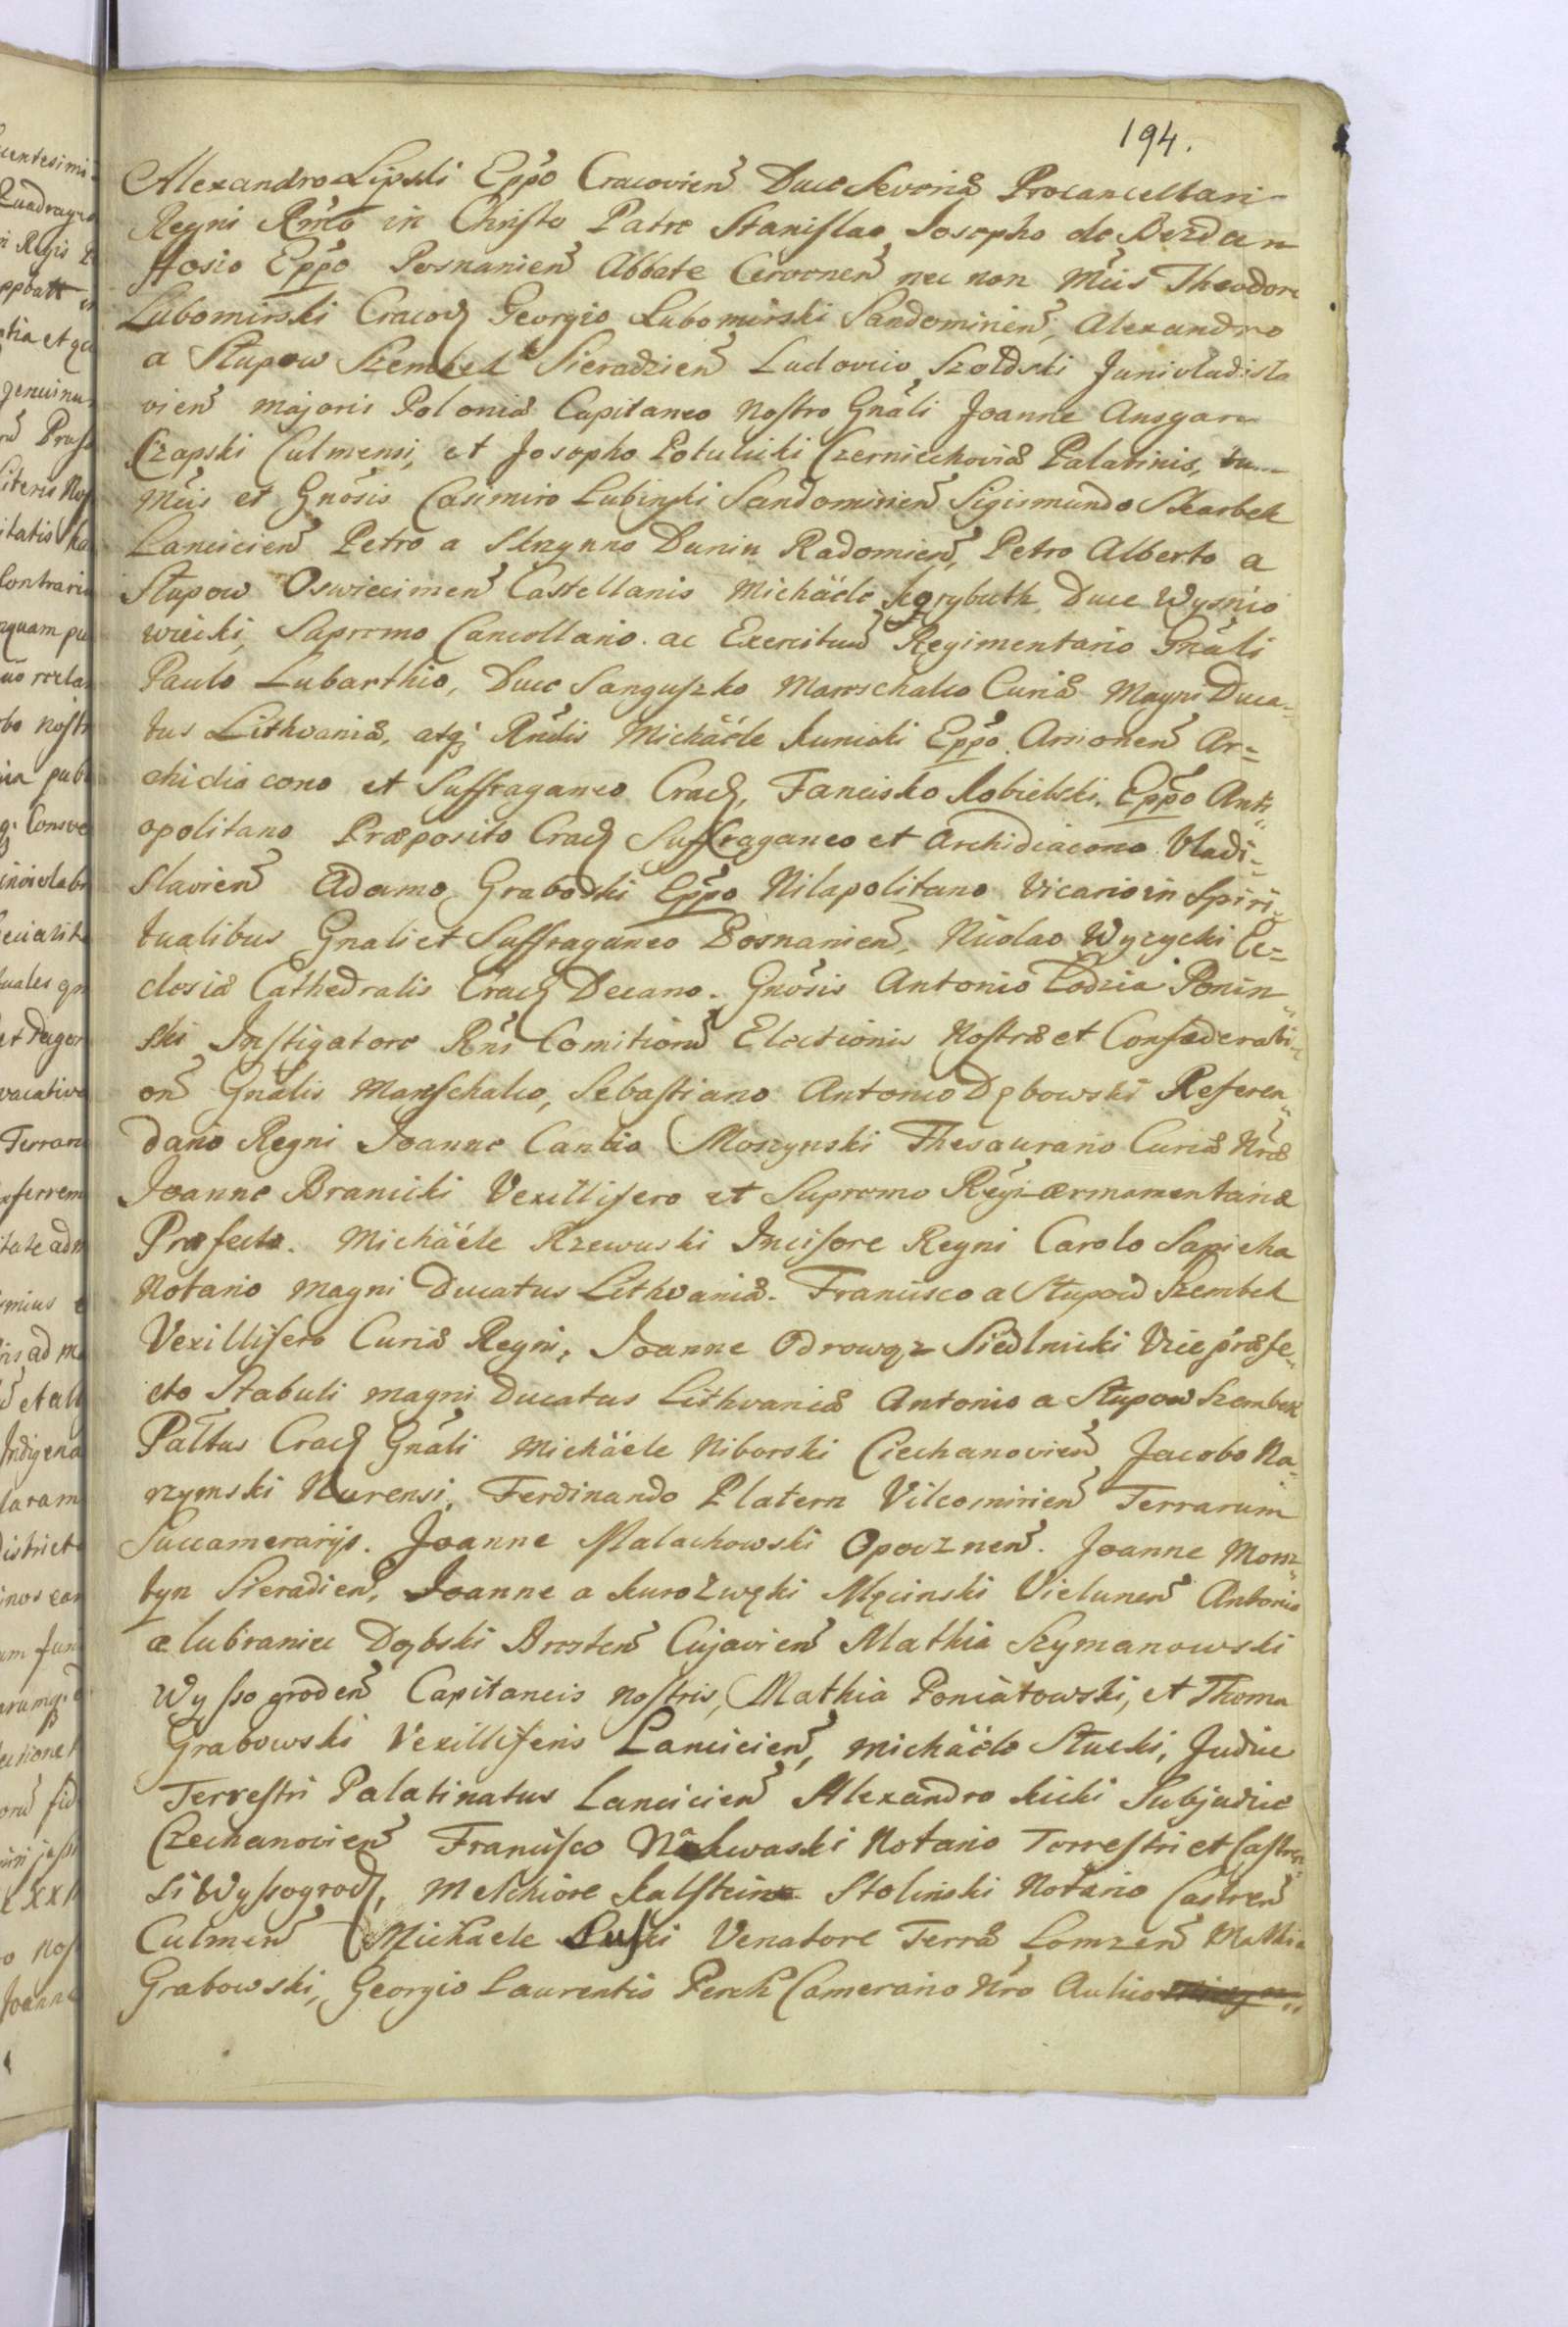 194.
Alexandro Lipski Eppo Cracovien Duce Severiæ Procancellari
Regni Rmo in Christo Patre Stanislao Josepho de Bezdan
Hosio Eppo Posnanien Abbate Cervonen nec non Mcis Theodoro
Lubomirski Cracov Georgio Lubomirski Sandomirien, Alexandro
a Słupow Szembek Sieradzien Ludovico Szołdski Junivladisla
vien majoris Poloniæ Capitaneo Nostro Gnali Joanne Ansgaro
Czapski Culmensi, et Josepho Potulicki Czerniechoviæ Palatinis, tu
Mcis et Gnosis Casimiro Lubinski Sandomirien Sigismundo Skarbek
Lancicien Petro a Skrzynno Dunin Radomien, Petro Alberto a
Słupow Oswiecimen Castellanis Michäele Korybuth Duce Wysnio
wiecki, Supremo Cancellario ac Exercituū Regimentario Gnali
Paulo Lubarthio, Duce Sanguszko Marschalco Curiæ Magni Duca-
tus Lithvaniæ, atq Rndis Michäele Kunicki Eppo Arsionen Ar=
chidiacono et Suffraganeo Crac, Fancisko Kobielski, Eppo Anti
opolitano Præposito Crac Suffraganeo et Archidiacono Vladi=
slavien Adamo Grabowski Eppo Nilapolitano Vicario in Spiri
tualibus Gnali et Suffraganeo Posnanien, Nicolao Wyzycki Ec=
clesiæ Cathedralis Crac Decano. Gnosis Antonio Łodzia Ponin
ski Instigatore Rni Comitiorū Electionis Nostræ et Confæderati
on Gnalis Marschalco, Sebastiano Antonio Dębowski Referen
dario Regni Joanne Cantio Moszynski Thesaurario Curiæ Nræ
Joanne Branicki Vexillifero et Supremo Regi armamentariæ
Præfecto. Michäele Rzewuski Incisore Regni Carolo Sapieha
Notario Magni Ducatus Lithvaniæ. Francisco a Słupow Szembek
Vexillifero Curiæ Regni, Joanne Odrowąz Siedlnicki Vice præfe
cto Stabuli magni Ducatus Lithvaniæ Antonio a Słupow Szembek
Paltus Crac Gnali Michäele Niborski Ciechanovien Jacobo Na
rzymski Nurensi, Ferdinando Platern Vilcomirien Terrarum
Succamerarijs. Joanne Małachowski Opocznen. Joanne Mom
tyn Sieradien, Joanne a Kurozwęki Męcinski Vielunen Antonio
a lubraniec Dąbski Bresten Cujavien Mathia Szymanowski
Wyssogroden Capitaneis nostris, Mathia Poniatowski, et Thoma
Grabowski Vexilliferis Lancicien, michäele Stucki, Judice
Terrestri Palatinatus Lancicien Alexandro Kicki Subjudice
Czechanovien Francisco Nakwaski Notario Terrestri et Castren
si Wyssogrod, Melchiore Kalstein Stolinski Notario Castren
Culmen Michaele Luski Venatore Terræ Lomzen Mathia
Grabowski, Georgio Laurentio Perch Camerario Nro Aulico